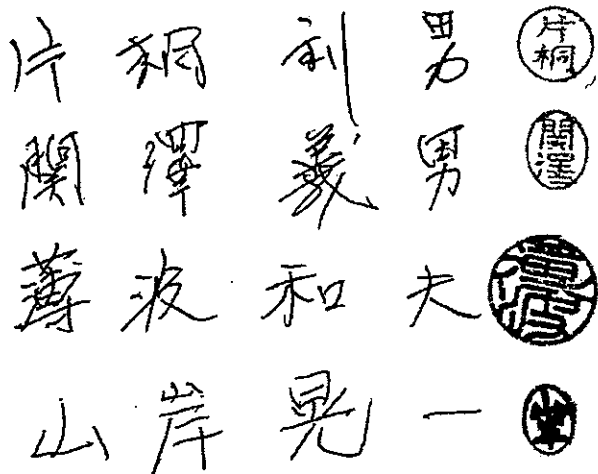 片桐利男 片桐
関澤義男 関澤
薄波和夫 薄波
山岸晃一 山岸